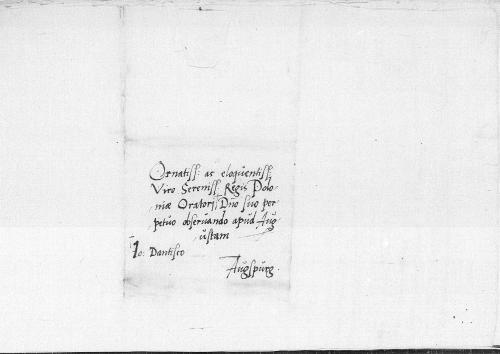 Ornatiss: ac eloquentiss:
Viro Sereniss. Regis Polo-
niæ Oratori, Dno suo per-
petuo observando apud Aug-
ustam
Io: Dantisco
Augspurg.